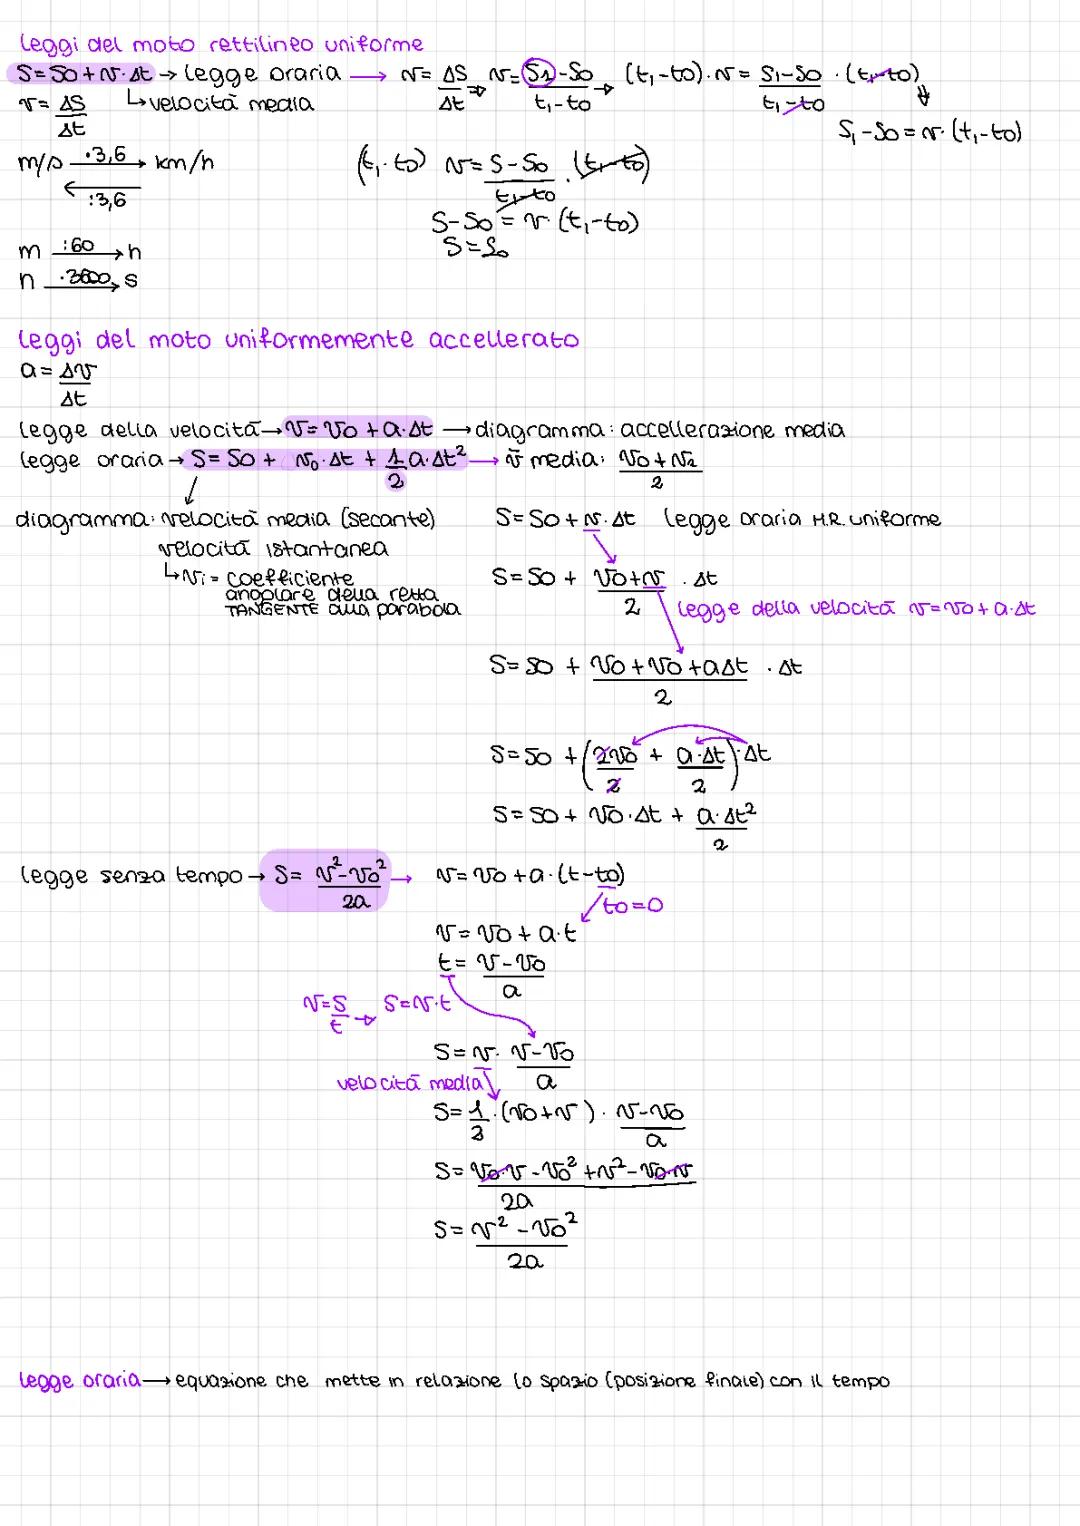 Leggi del moto rettilineo uniforme
S = S0 + v·Δt → legge oraria → v = ΔS/Δt ⇒ v = (S1 - S0)/(t1 - t0) → (t1 - t0)·v = (S1 - S0)/(t1 - t0) · (t1 - t0)
v = ΔS/Δt ↳ velocità media
S1 - S0 = v·(t1 - t0)
m/s ·3,6 → km/h
← :3,6
(t1 - t0) v = (S - S0)/(t1 - t0) · (t1 - t0)
S - S0 = v·(t1 - t0)
S = S0
m :60 → h
h ·3600 → s
Leggi del moto uniformemente accellerato
a = Δv/Δt
legge della velocità → v = v0 + a·Δt → diagramma: accellerazione media
legge oraria → S = S0 + v0·Δt + 1/2 a·Δt² → v̄ media: (v0 + v2)/2
diagramma: velocità media (secante)
velocità istantanea
↳ vi = coefficiente
angolare della retta
TANGENTE alla parabola
S = S0 + v·Δt legge oraria M.R. uniforme
S = S0 + (v0 + v)/2 · Δt
legge della velocità v = v0 + a·Δt
S = S0 + (v0 + v0 + aΔt)/2 · Δt
S = S0 + (2v0/2 + a·Δt/2)·Δt
S = S0 + v0·Δt + a·Δt²/2
legge senza tempo → S = (v² - v0²)/2a → v = v0 + a·(t - t0)
t0 = 0
v = v0 + a·t
t = (v - v0)/a
v = S/t → S = v·t
S = v· (v - v0)/a
velocità media
S = 1/2·(v0 + v)· (v - v0)/a
S = (v0·v - v0² + v² - v0·v)/2a
S = (v² - v0²)/2a
legge oraria → equazione che mette in relazione lo spazio (posizione finale) con il tempo